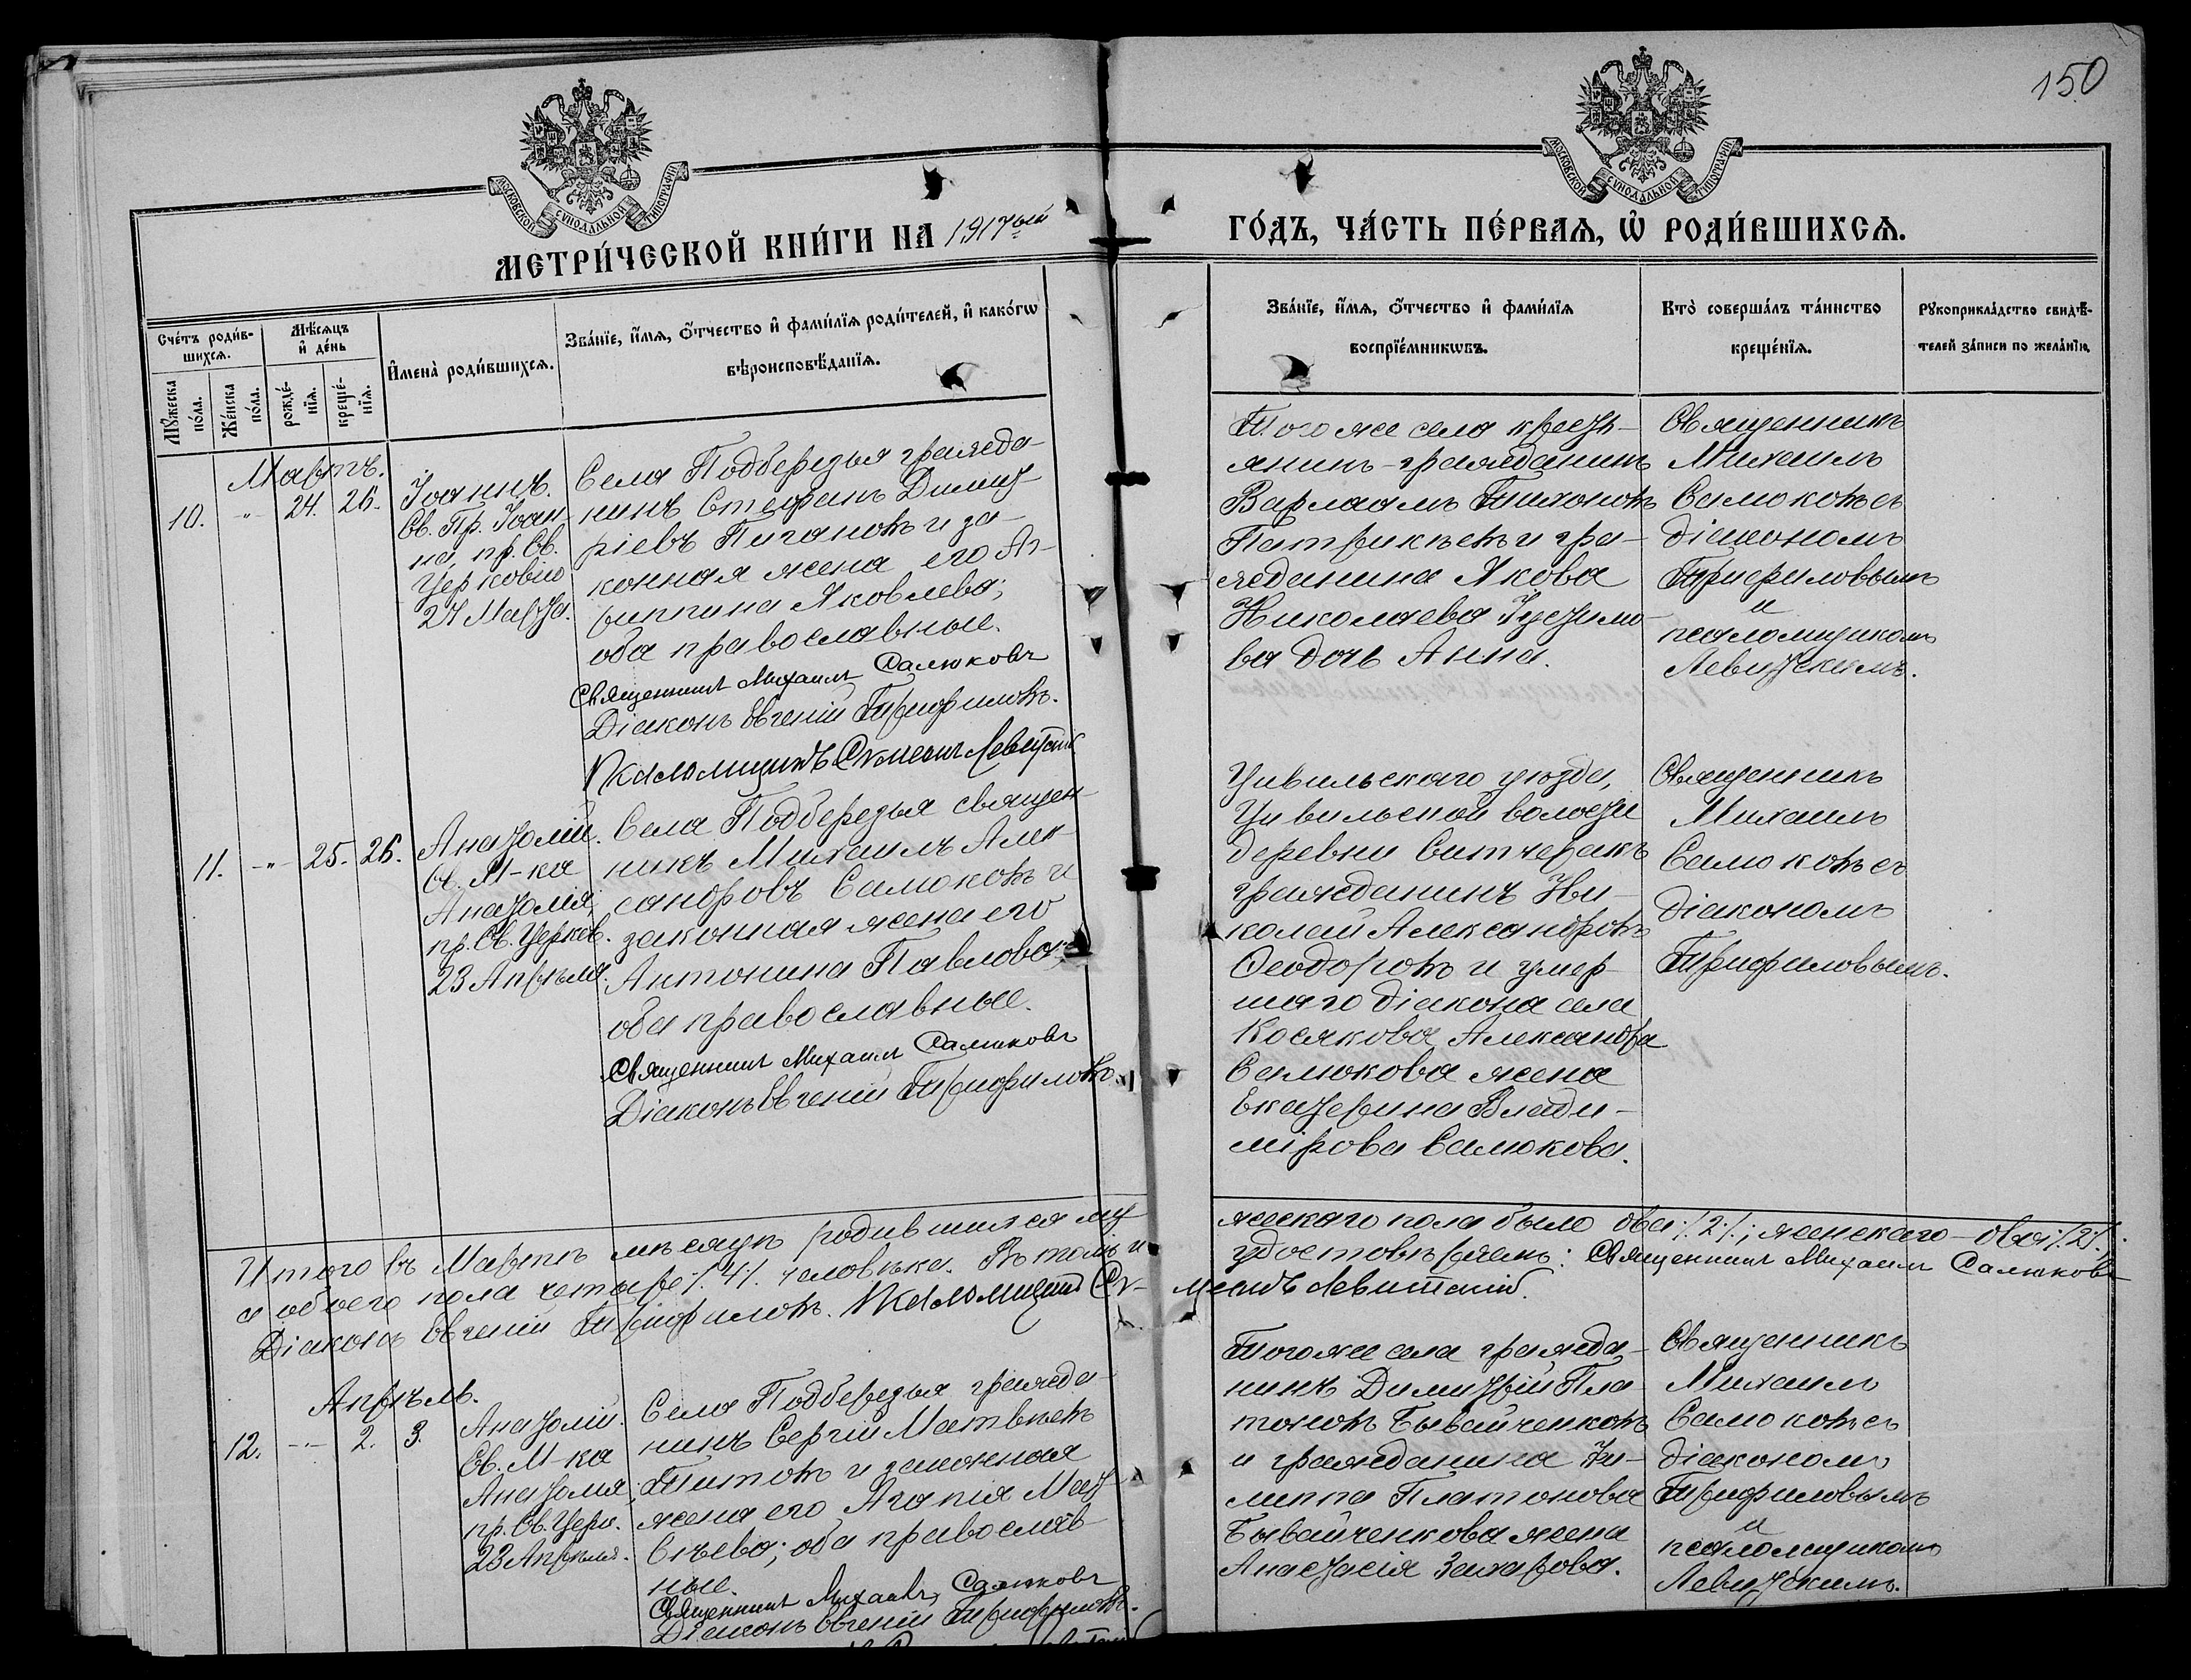 150
МОСКОВСКОЙ СѴНОДАЛЬНОЙ ТИПОГРАФІИ
МОСКОВСКОЙ СѴНОДАЛЬНОЙ ТИПОГРАФІИ
МЕТРИ́ЧЕСКОЙ КНИ́ГИ НА 1917ый
ГО́ДЪ, ЧА́СТЬ ПЕ́РВАѦ, Ѡ҆ РОДИ́ВШИХСѦ.
Сче́тъ роди́в-
шихсѧ.
Мꙋ́жеска
по́ла.
Же́нска
по́ла.
Мѣ́сѧцъ
и҆ де́нь
рожде́-
нїѧ.
креще́-
нїѧ.
И҆мена̀ роди́вшихсѧ.
Зва́нїе, и҆́мѧ, ѻ҆́тчество и҆ фами́лїѧ роди́телей, и҆ како́гѡ
вѣроисповѣ́данїѧ.
Зва́нїе, и҆́мѧ, ѻ҆́тчество и҆ фами́лїѧ
воспрїе́мникѡвъ.
Кто̀ соверша́лъ та́инство
креще́нїѧ.
Рꙋкоприкла́дство свидѣ́-
телей за́писи по жела́нїю.
Мартъ.
10. -"- 24. 26.
Іоаннъ.
Св. Пр. Іоан-
на, пр. Св.
Церковію
27 Марта.
Села Подберезья гражда-
нинъ Стефанъ Димит-
ріевъ Пигановъ и за-
конная жена его Аг-
риппина Яковлева;
оба православные.
Священникъ Михаилъ Салюковъ
Діаконъ Евгеній Трифиловъ.
Псаломщикъ Семенъ Левитскій
Того же села кресть-
янинъ-гражданинъ
Варлаамъ Тихоновъ
Патрикѣевъ и гра-
жданина Якова
Николаева
ва дочь Анна.
Священникъ
Михаилъ
Салюковъ съ
діакономъ
Трифиловымъ
и
псаломщикомъ
Левитскимъ.
11. -"- 25. 26.
Анатолій.
Св. М-ка
Анатолія,
пр. Св. Церков.
23 Апрѣля.
Села Подберезья священ-
никъ Михаилъ Алек-
сандровъ Салюковъ и
законная жена его
Антонина Павлова;
оба православные.
Священникъ Михаилъ Салюковъ
Діаконъ Евгеній Трифиловъ.
Цивильскаго уѣзда,
Цивильской волости
деревни
гражданинъ Ни-
колай Александровъ
Ѳеодоровъ и умер-
шаго діакона села
Косякова Александра
Салюкова жена
Екатерина Влади-
мірова Салюкова.
Священникъ
Михаилъ
Салюковъ съ
діакономъ
Трифиловымъ.
Итого въ Мартѣ мѣсяцѣ родившихся му-
жескаго пола было два ٪ 2 ٪; женскаго – два ٪ 2 ٪;
а обоего пола четыре ٪ 4 ٪ человѣка. Въ томъ и
удостовѣряемъ: Священникъ Михаилъ Салюковъ
Діаконъ Евгеній Трифиловъ. Псаломщикъ Се-
менъ Левитскій.
Апрѣль.
12. -"- 2. 3.
Анатолій.
Св. М-ка
Анатолія,
пр. Св. Церк.
23 Апрѣля.
Села Подберезья гражда-
нинъ Сергій Матвѣевъ
Титовъ и законная
жена его Агапія Мат-
вѣева; оба православ-
ные.
Священникъ Михаилъ Салюковъ
Діаконъ Евгеній Трифиловъ.
Того же села гражда-
нинъ Димитрій Пла-
тоновъ Бывайченковъ
и гражданина Фи-
липпа Платонова
Бывайченкова жена
Анастасія Захарова.
Священникъ
Михаилъ
Салюковъ съ
діакономъ
Трифиловымъ
и
псаломщикомъ
Левитскимъ.